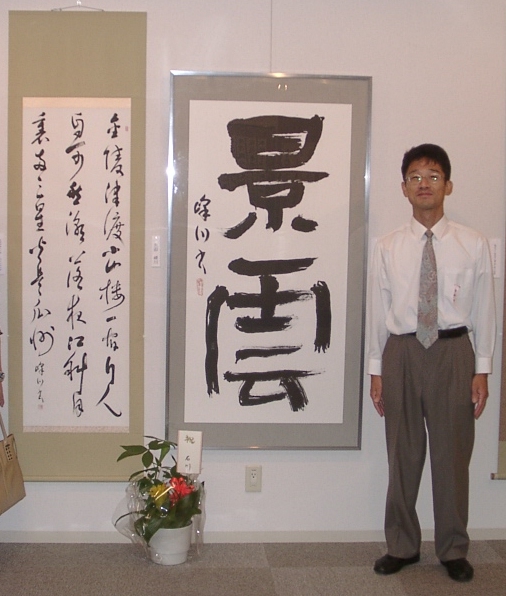 景雲
峰川書
金陵津渡小山楼一宿行人
自可愁潮落夜江斜月
裏両三星火是瓜州 峰川書
祝